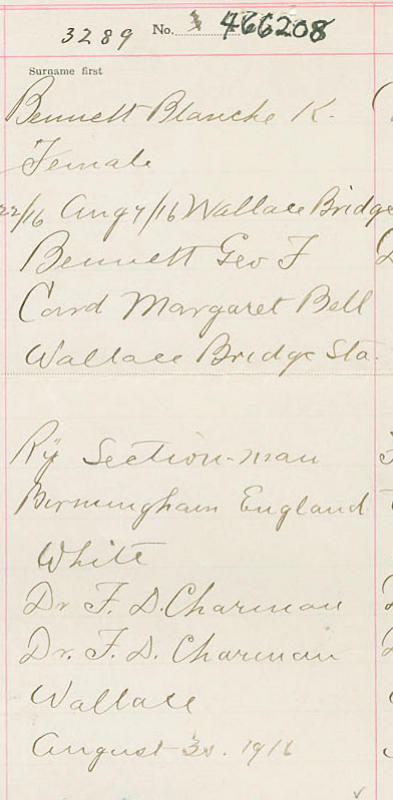 3289 No. 466208
Surname first
Bennett Blanche K.
Female
22/16 Aug 7/16 Wallace Bridge
Bennett Geo F
Card Margaret Bell
Wallace Bridge Sta.
Ry Section-man
Birmingham England
White
Dr F. D. Charman
Dr. F. D. Charman
Wallace
August 30. 1916